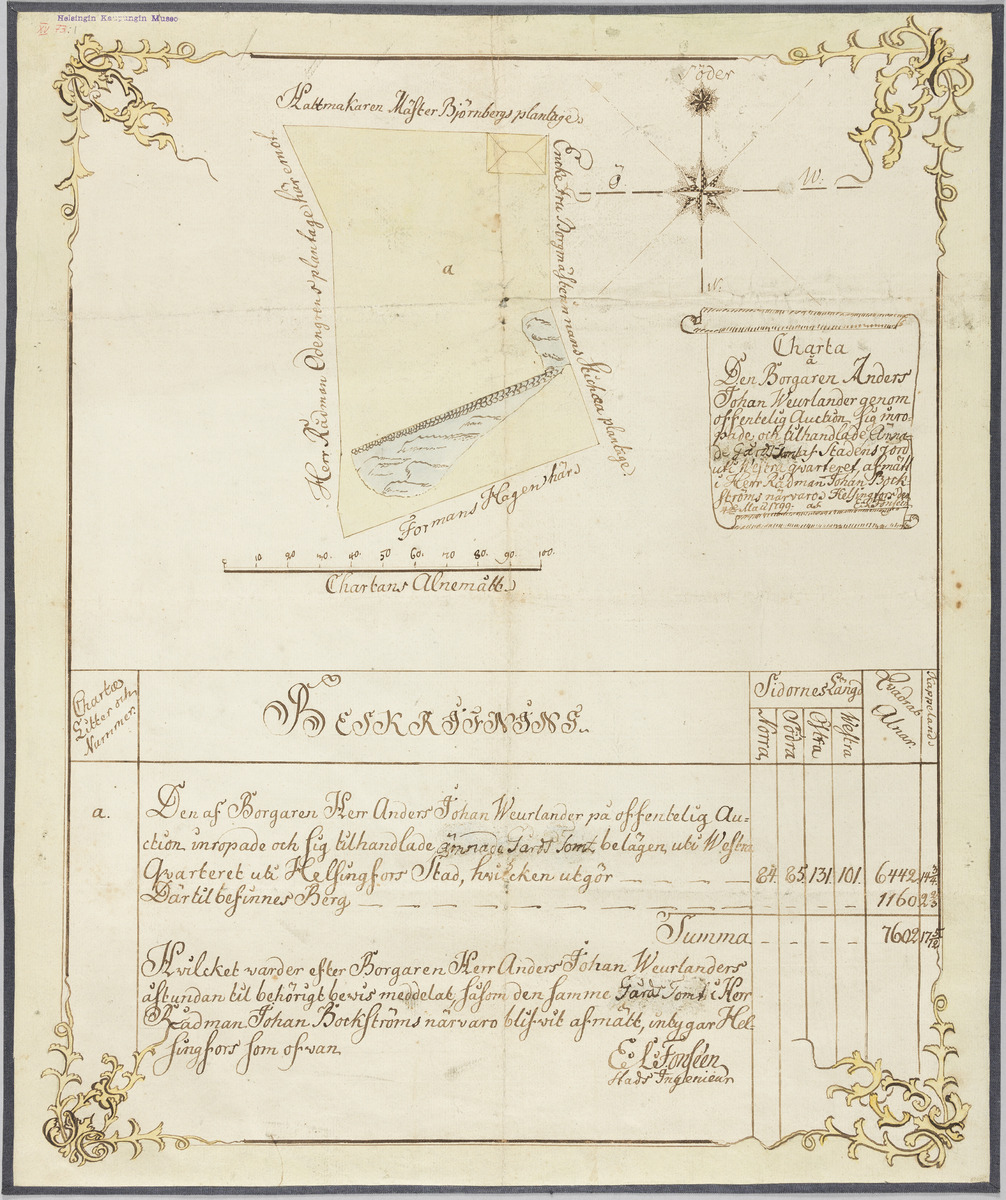 Helsingin Kaupungin Museo
Söder
Hattmakaren Mäster Björnbergs plantage
Herr Rådman Edengrens plantage här emot
Encke fru Borgmästerinnans plantage
Ö
W.
N.
a
Formans Hagen här
0 10 20 30. 40. 50 60. 70 80. 90. 100.
Chartans Alnemått
Charta
å
Den Borgaren Anders
Johan Weurlander genom
offentelig Auction sig inro-
pade och tilhandlade ämna-
de Gårds Tomt af Stadens jord
uti Westra qvarteret, afmätt
i Herr Rådman Johan Bock-
ströms närvaro Helsingfors den
Maii 1799. af E L Fonseen
Chartæ
Litter och
Nummer.
BESKRIFNING.
Sidornes Längd
Norra
Södra
Östra
Westra
Qvadrat
Alnar.
Kappeland
a. Den af Borgaren Herr Anders Johan Weurlander på offentelig Au-
ction inropade och sig tilhandlade ämnade Gårds Tomt belägen uti Westra
Qvarteret uti Helsingfors Stad, hvilcken utgör 84. 85. 131. 101. 6442 14 3/4
Därtil befinnes Berg 1160 2 2/3
Summa 7602 17 5/12
Hvilcket varder efter Borgaren Herr Anders Johan Weurlanders
åstundan til behörigt bevis meddelat, såsom den samme Gårds Tomt i Herr
Rådman Johan Bockströms närvaro blifvit afmätt, intygar Hel-
singfors som ofvan
E L Fonseen
Stads Ingenieur